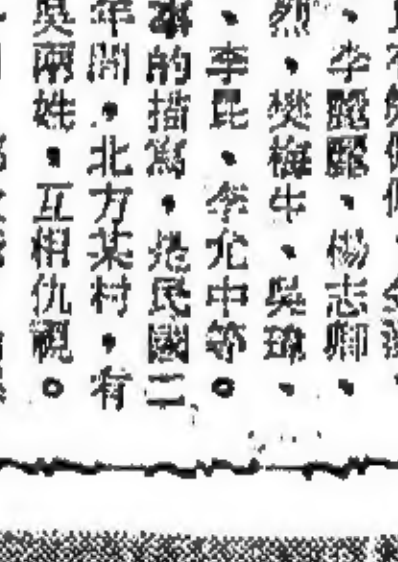 、李麗麗、楊志卿、
烈、樊梅生、吳
、李昆、李允中等。
事的描寫，是民國二
年間，北方某村，有
吳兩姓，互相仇視。